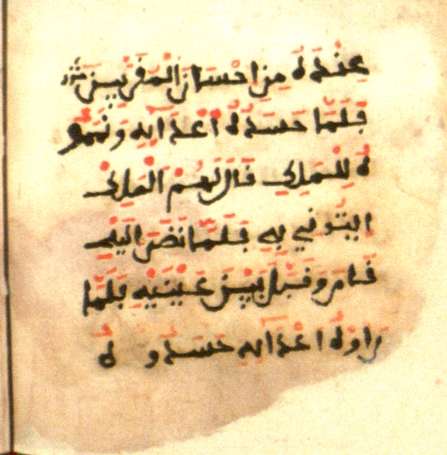 عنده من احسان المقربين
فلما حسده اعدايه ونمو
ه للملك قال لهم الملك
ايتوني به فلما نضر اليه
قام وقبل بين عينيه فلما
راوه اعدايه حسدو ه